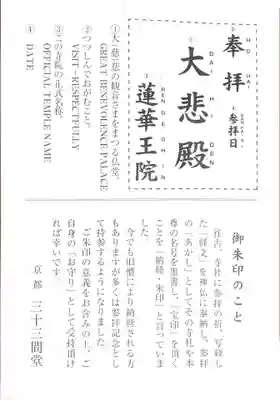 HO HAI
② 奉拝
④ 参拝日
DAI HI DEN
① 大悲殿
REN GE OH IN
③ 蓮華王院
①大慈悲の観音さまをまつる仏堂。
GREAT BENEVOLENCE PALACE
②つつしんでおがむこと。
VISIT－RESPECTFULLY
③この寺院の正式名称。
OFFICIAL TEMPLE NAME
④DATE
御朱印のこと
往古、寺社に参拝の折、写経し
た「経文」を神仏に奉納し、参拝
の「あかし」としてその寺社や本
尊の名号を墨書し、「宝印」を頂く
ことを「納経・朱印」と言っていま
した。
今でも旧慣により納経される方
もありますが多くは参拝記念とし
て持参するようになりました。
ご朱印の意義をお含みの上、ご
自身の「お守り」として受持頂け
れば幸いです。
京都 三十三間堂